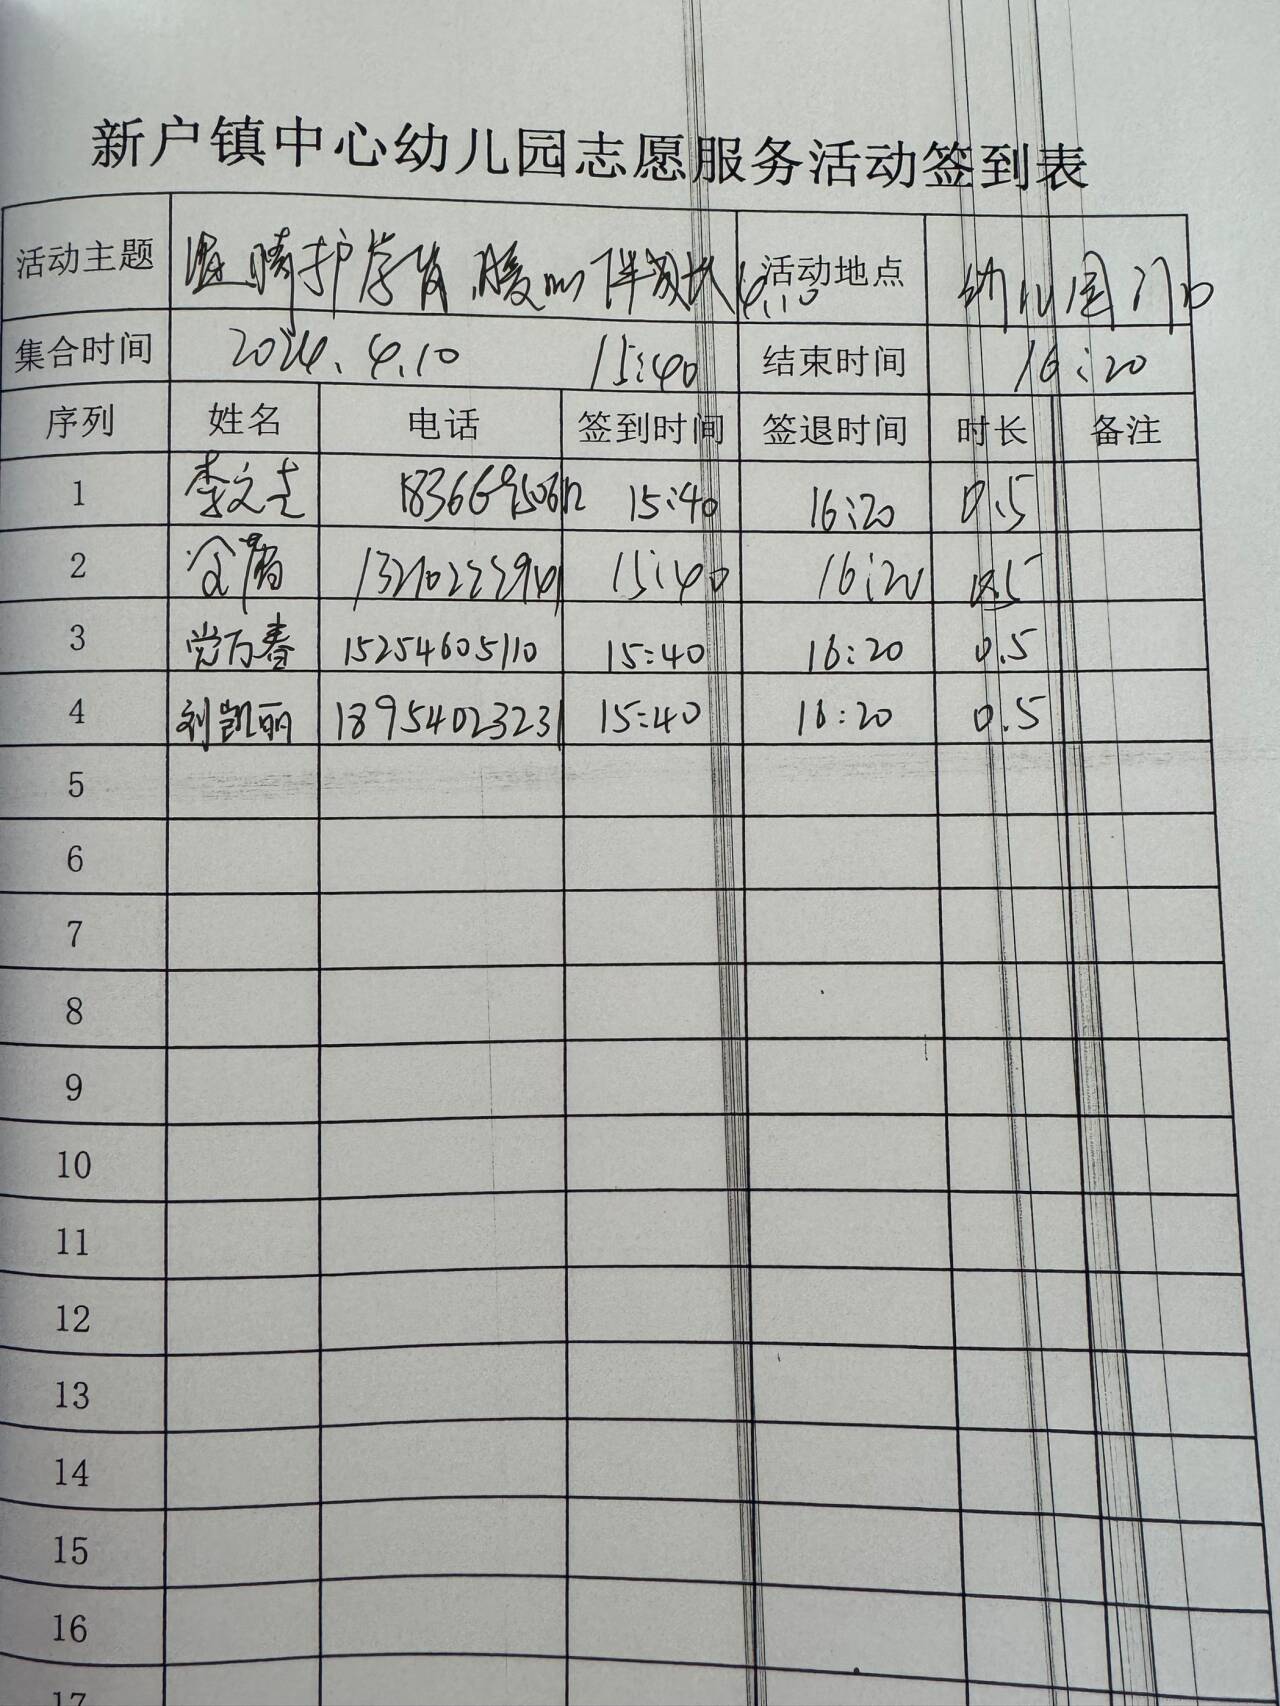 新户镇中心幼儿园志愿服务活动签到表
活动主题 护学岗，暖心伴成长4.10 活动地点 幼儿园门口
集合时间 2024.4.10 15:40 结束时间 16:20
序列 姓名 电话 签到时间 签退时间 时长 备注
1 李文 15:40 16:20 0.5
2 15:40 16:20 0.5
3 党万春 15254605110 15:40 16:20 0.5
4 刘凯丽 18954023231 15:40 16:20 0.5
5
6
7
8
9
10
11
12
13
14
15
16
17